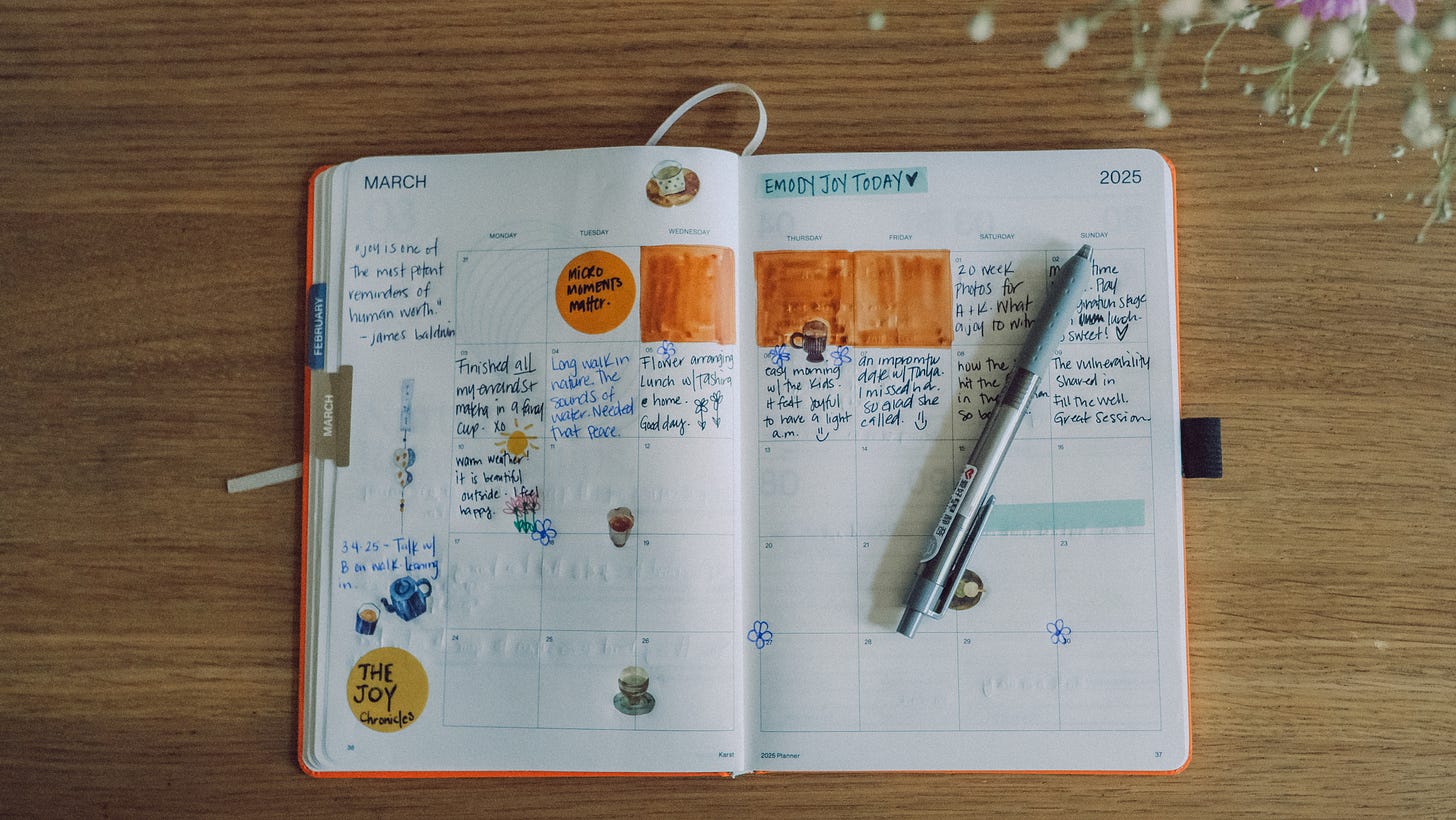 MARCH
EMODY JOY TODAY
2025
MONDAY
TUESDAY
WEDNESDAY
THURSDAY
FRIDAY
SATURDAY
SUNDAY
"Joy is one of
the most potent
reminders of
human worth."
- james baldwin
FEBRUARY
MARCH
31
MICRO
MOMENTS
matter.
01
20 week
photos for
A + K. What
a joy to
02
time
Play
stage
lunch.
sweet!
03
Finished all
my errands +
matcha in a fancy
cup. xo
04
Long walk in
nature. The
sounds of
water. Needed
that peace.
05
Flower arranging
Lunch w/ Tashira
@ home.
Good day.
06
easy morning
w/ the kids.
it felt joyful
to have a light
a.m.
07
an impromptu
date w/ Tonya.
I missed her.
So glad she
called.
08
how the
hit the
in the
so
09
The vulnerability
Shared in
Fill the Well.
Great Session.
10
warm weather!
it is beautiful
outside. I feel
happy.
11
12
13
14
15
16
3·4·25 - Talk w/
B on walk. Leaning
in.
17
19
20
21
23
24
25
26
27
28
29
30
THE
JOY
Chronicles
36
Karst
2025 Planner
37